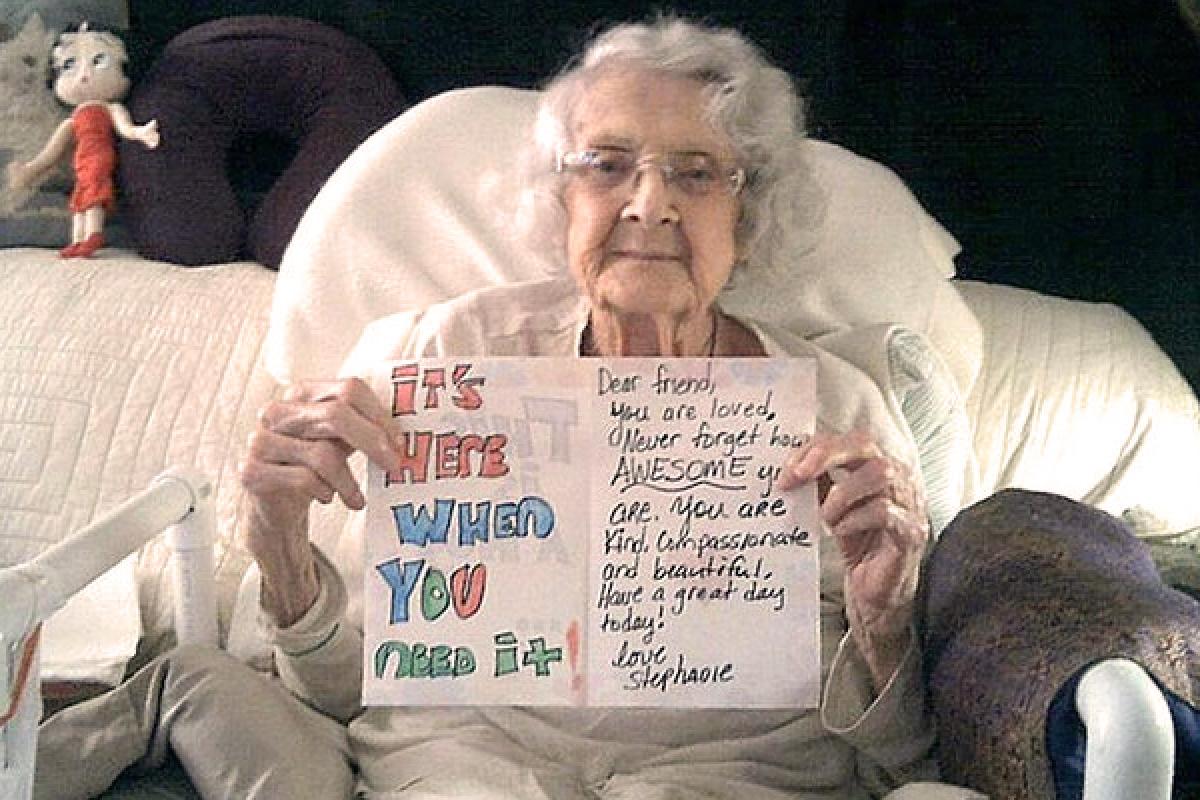 it's
HERE
WHEN
YOU
NEED it!
Dear friend,
you are loved.
Never forget how
AWESOME y
are. You are
Kind, Compassionate
and beautiful.
Have a great day
today!
love
Stephanie